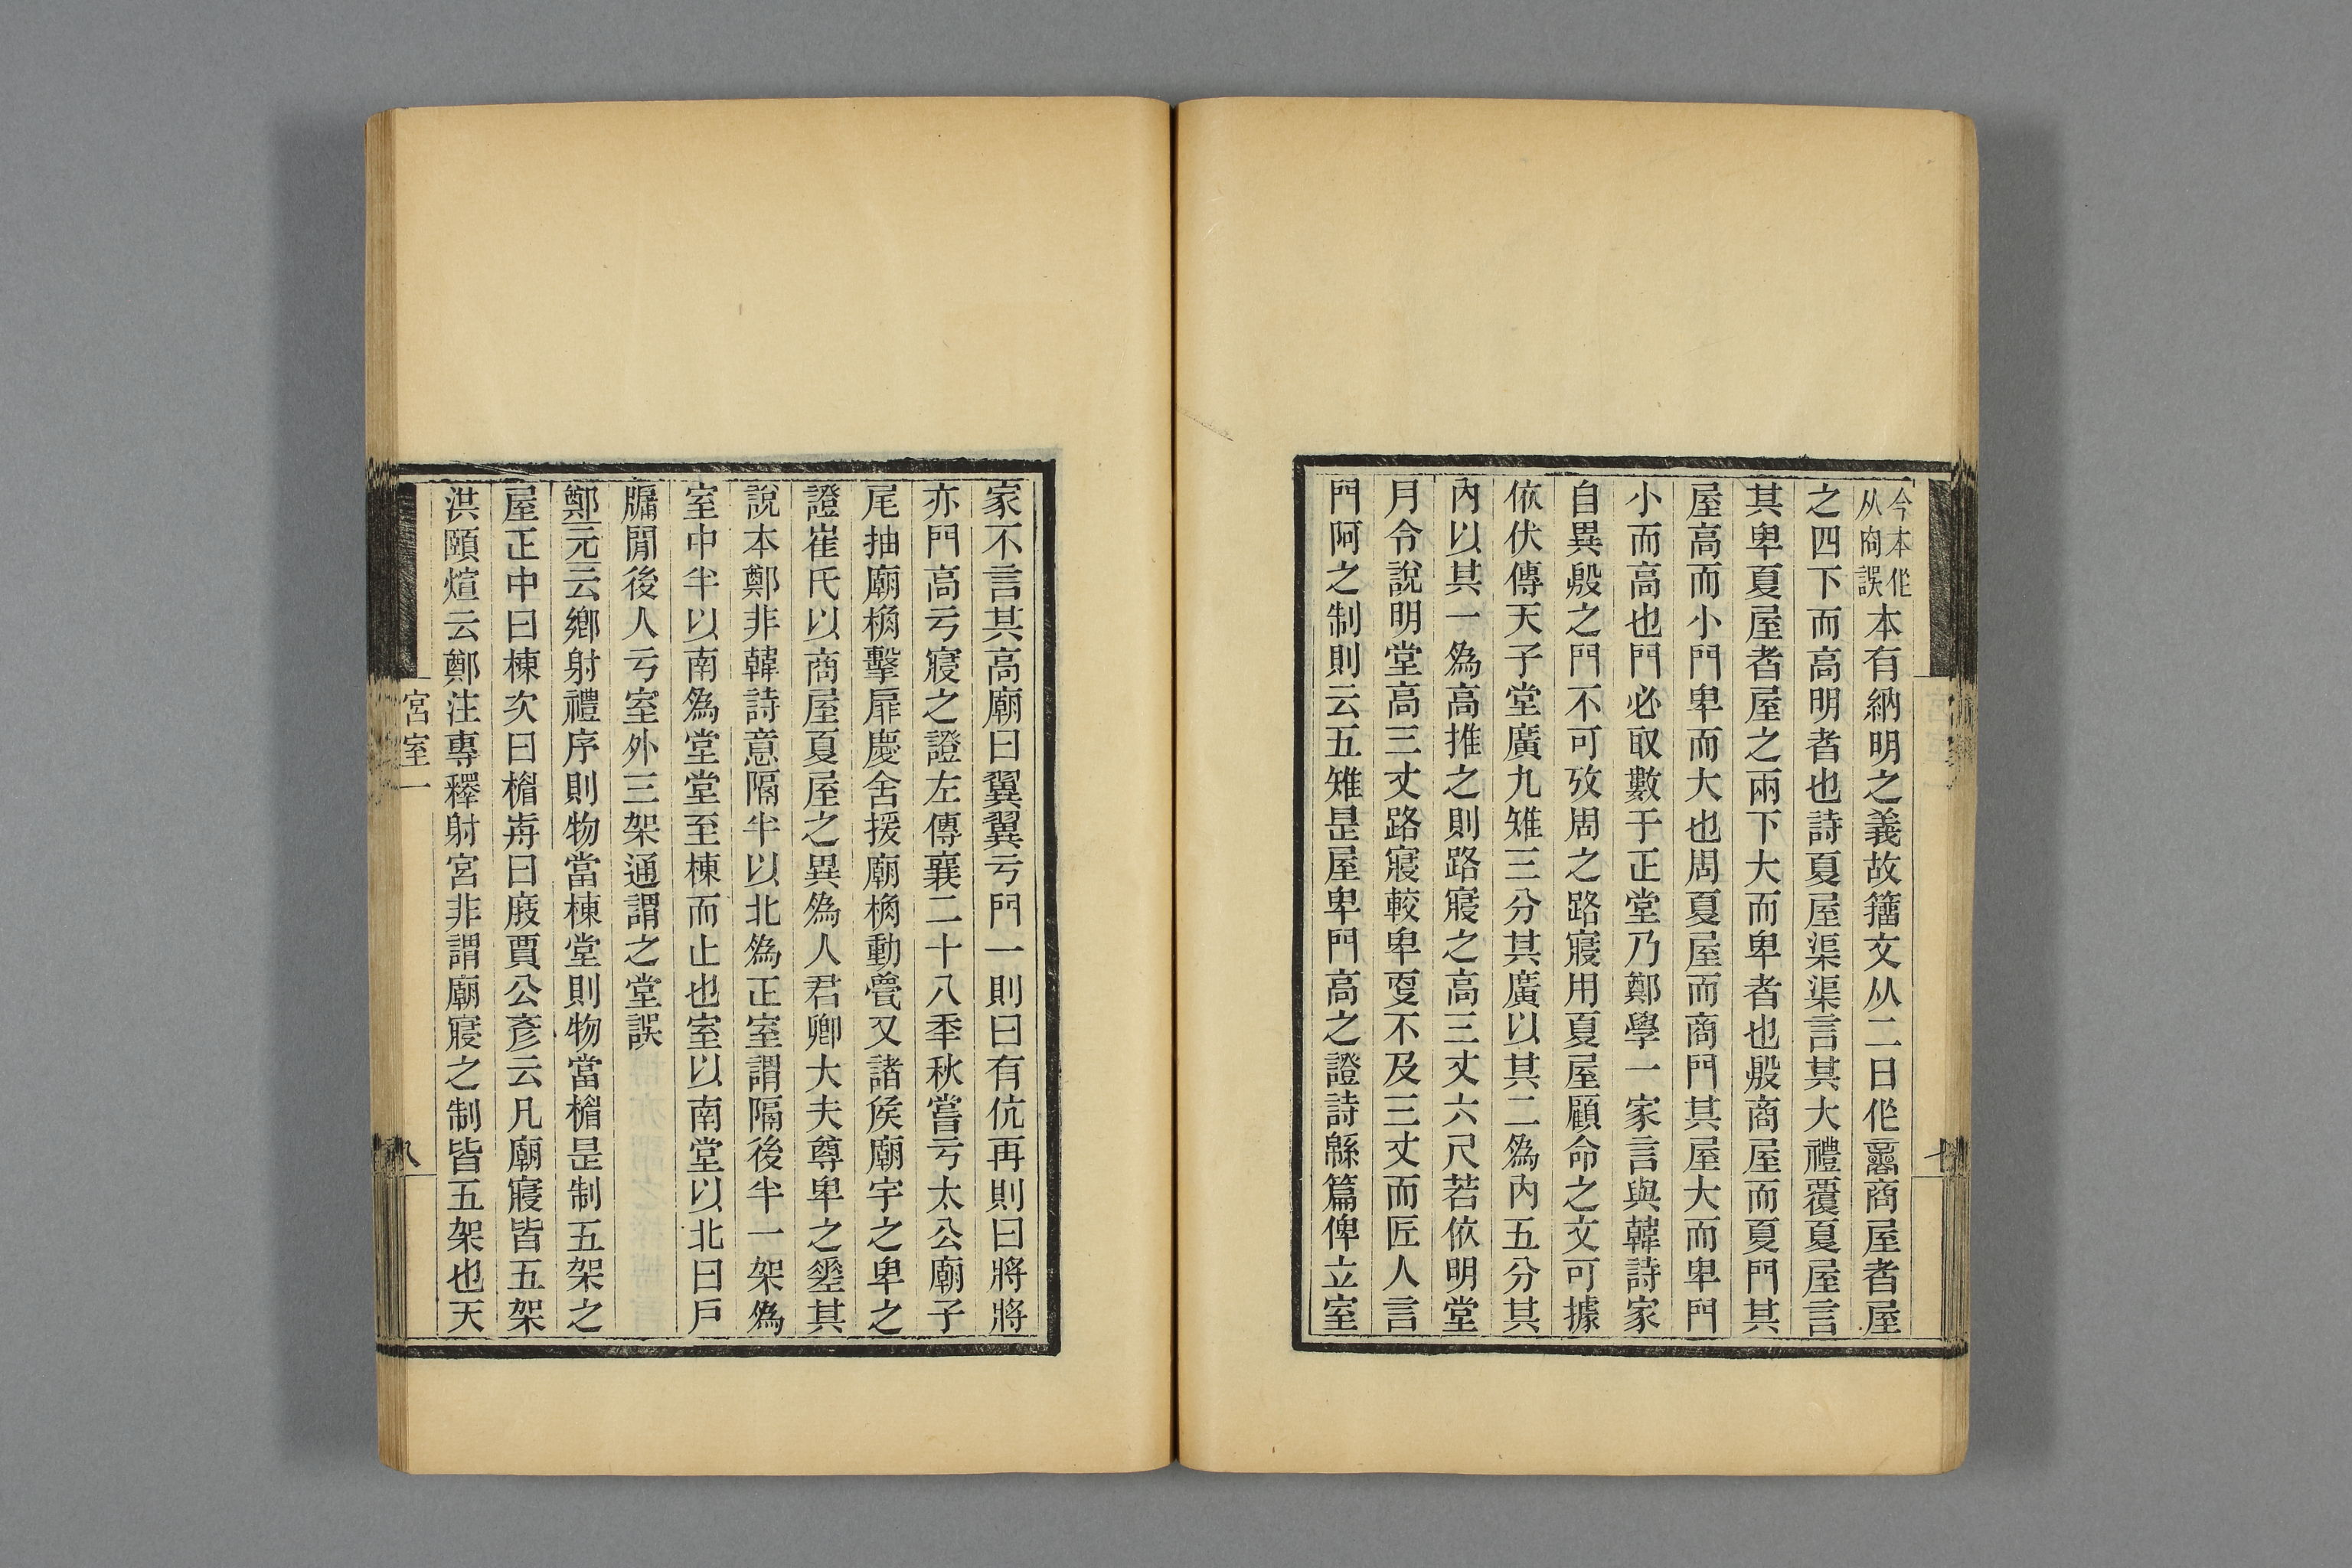 今本作
从商誤
本有納明之義故籒文从二日作𠾃商屋者屋
之四下而高明者也詩夏屋渠渠言其大禮覆夏屋言
其卑夏屋者屋之兩下大而卑者也殷商屋而夏門其
屋高而小門卑而大也周夏屋而商門其屋大而卑門
小而高也門必取數于正堂乃鄭學一家言與韓詩家
自異殷之門不可攷周之路寢用夏屋顧命之文可據
依伏傳天子堂廣九雉三分其廣以其二爲內五分其
內以其一爲高推之則路寢之高三丈六尺若依明堂
月令說明堂高三丈路寢較卑㪅不及三丈而匠人言
門阿之制則云五雉是屋卑門高之證詩緜篇俾立室
家不言其高廟曰翼翼亏門一則曰有伉再則曰將將
亦門高亏寢之證左傳襄二十八秊秋嘗亏太公廟子
尾抽廟桷擊扉慶舍援廟桷動甍又諸矦廟宇之卑之
證崔氏以商屋夏屋之異爲人君卿大夫尊卑之𢀩其
說本鄭非韓詩意隔半以北爲正室謂隔後半一架爲
室中半以南爲堂堂至棟而止也室以南堂以北曰戶
牖閒後人亏室外三架通謂之堂誤
鄭元云鄉射禮序則物當棟堂則物當楣是制五架之
屋正中曰棟次曰楣歬曰庪賈公彥云凡廟寢皆五架
洪頤煊云鄭注專釋射宮非謂廟寢之制皆五架也天
宮室一
八
七